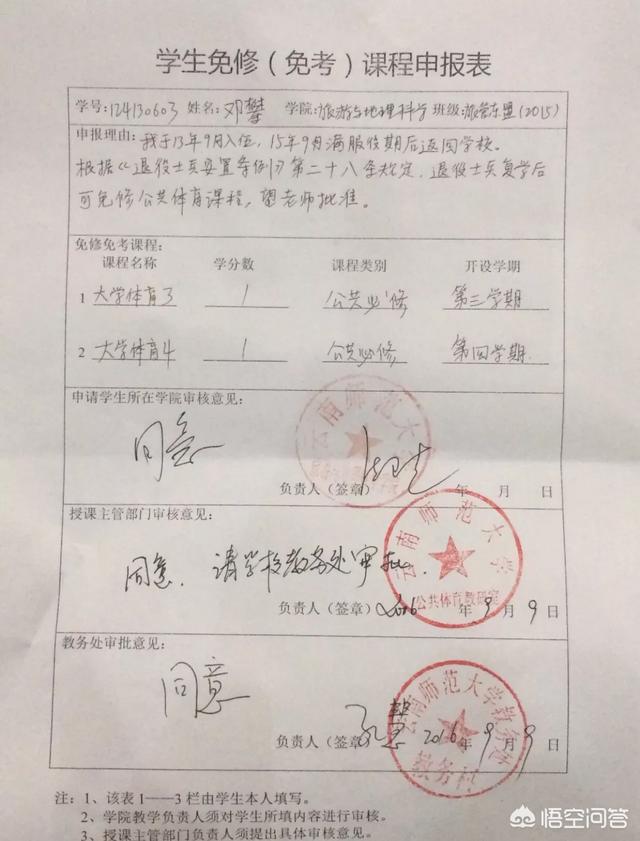 学生免修（免考）课程申报表
学号:124130603 姓名:邓攀 学院:旅游与地理科学 班级:旅管东盟(2015)
申报理由:我于13年9月入伍，15年9月满服役期后返回学校。
根据《退役士兵安置条例》第二十八条规定，退役士兵复学后
可免修公共体育课程，望老师批准。
免修免考课程:
课程名称 学分数 课程类别 开设学期
1 大学体育3 1 公共必修 第三学期
2 大学体育4 1 公共必修 第四学期
申请学生所在学院审核意见:
同意
云南师范大学
负责人（签章） 年 月 日
授课主管部门审核意见:
同意，请学校教务处审批.
云南师范大学
公共体育教研室
负责人（签章）2016年9月9日
教务处审批意见:
同意
云南师范大学教务处
教务科
负责人（签章） 2016年9月9日
注：1、该表1——3栏由学生本人填写。
2、学院教学负责人须对学生所填内容进行审核。
3、授课主管部门负责人须提出具体审核意见。
悟空问答